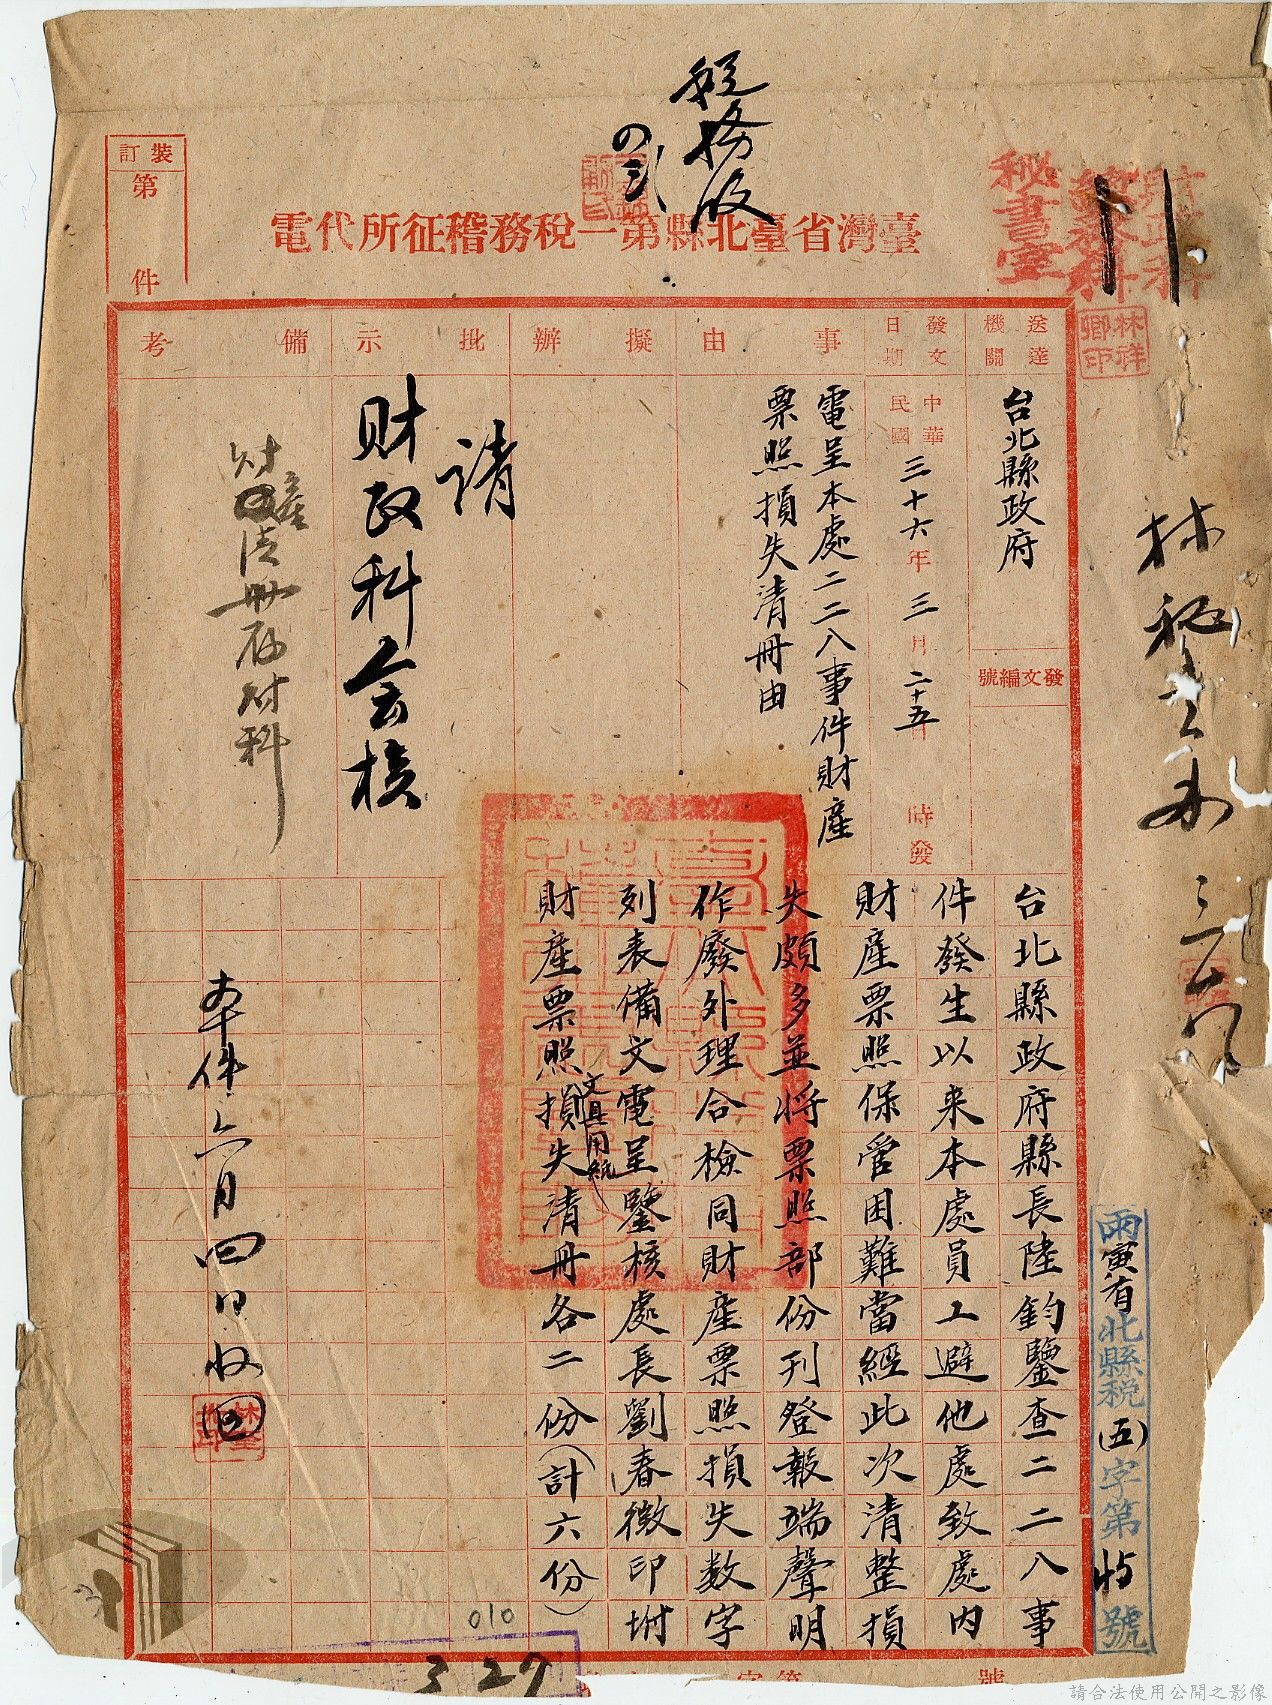 稅務股
裝訂
第
件
臺灣省臺北縣第一稅務稽征所代電
財政科
秘書室
林祥
卿印
送達機關
台北縣政府
發文編號
發文日期
中華民國三十六年三月二十五日
時發
事由
電呈本處二二八事件財產
票照損失清冊由
擬辦
批示
請
財政科会核
備考
財產清冊存財科
台北縣政府縣長陸鈞鑒查二二八事
件發生以來本處員工避他處致處內
財產票照保管困難當經此次清整損
失頗多並將票照部份刊登報端聲明
作廢外理合檢同財產票照損失數字
列表備文電呈鑒核處長劉春徴印坿
財產票照損失清冊各二份(計六份)
文具用紙
本件六月四日收
兩寅有北縣稅(五)字第45號
010
327
字第
號
請合法使用公開之影像